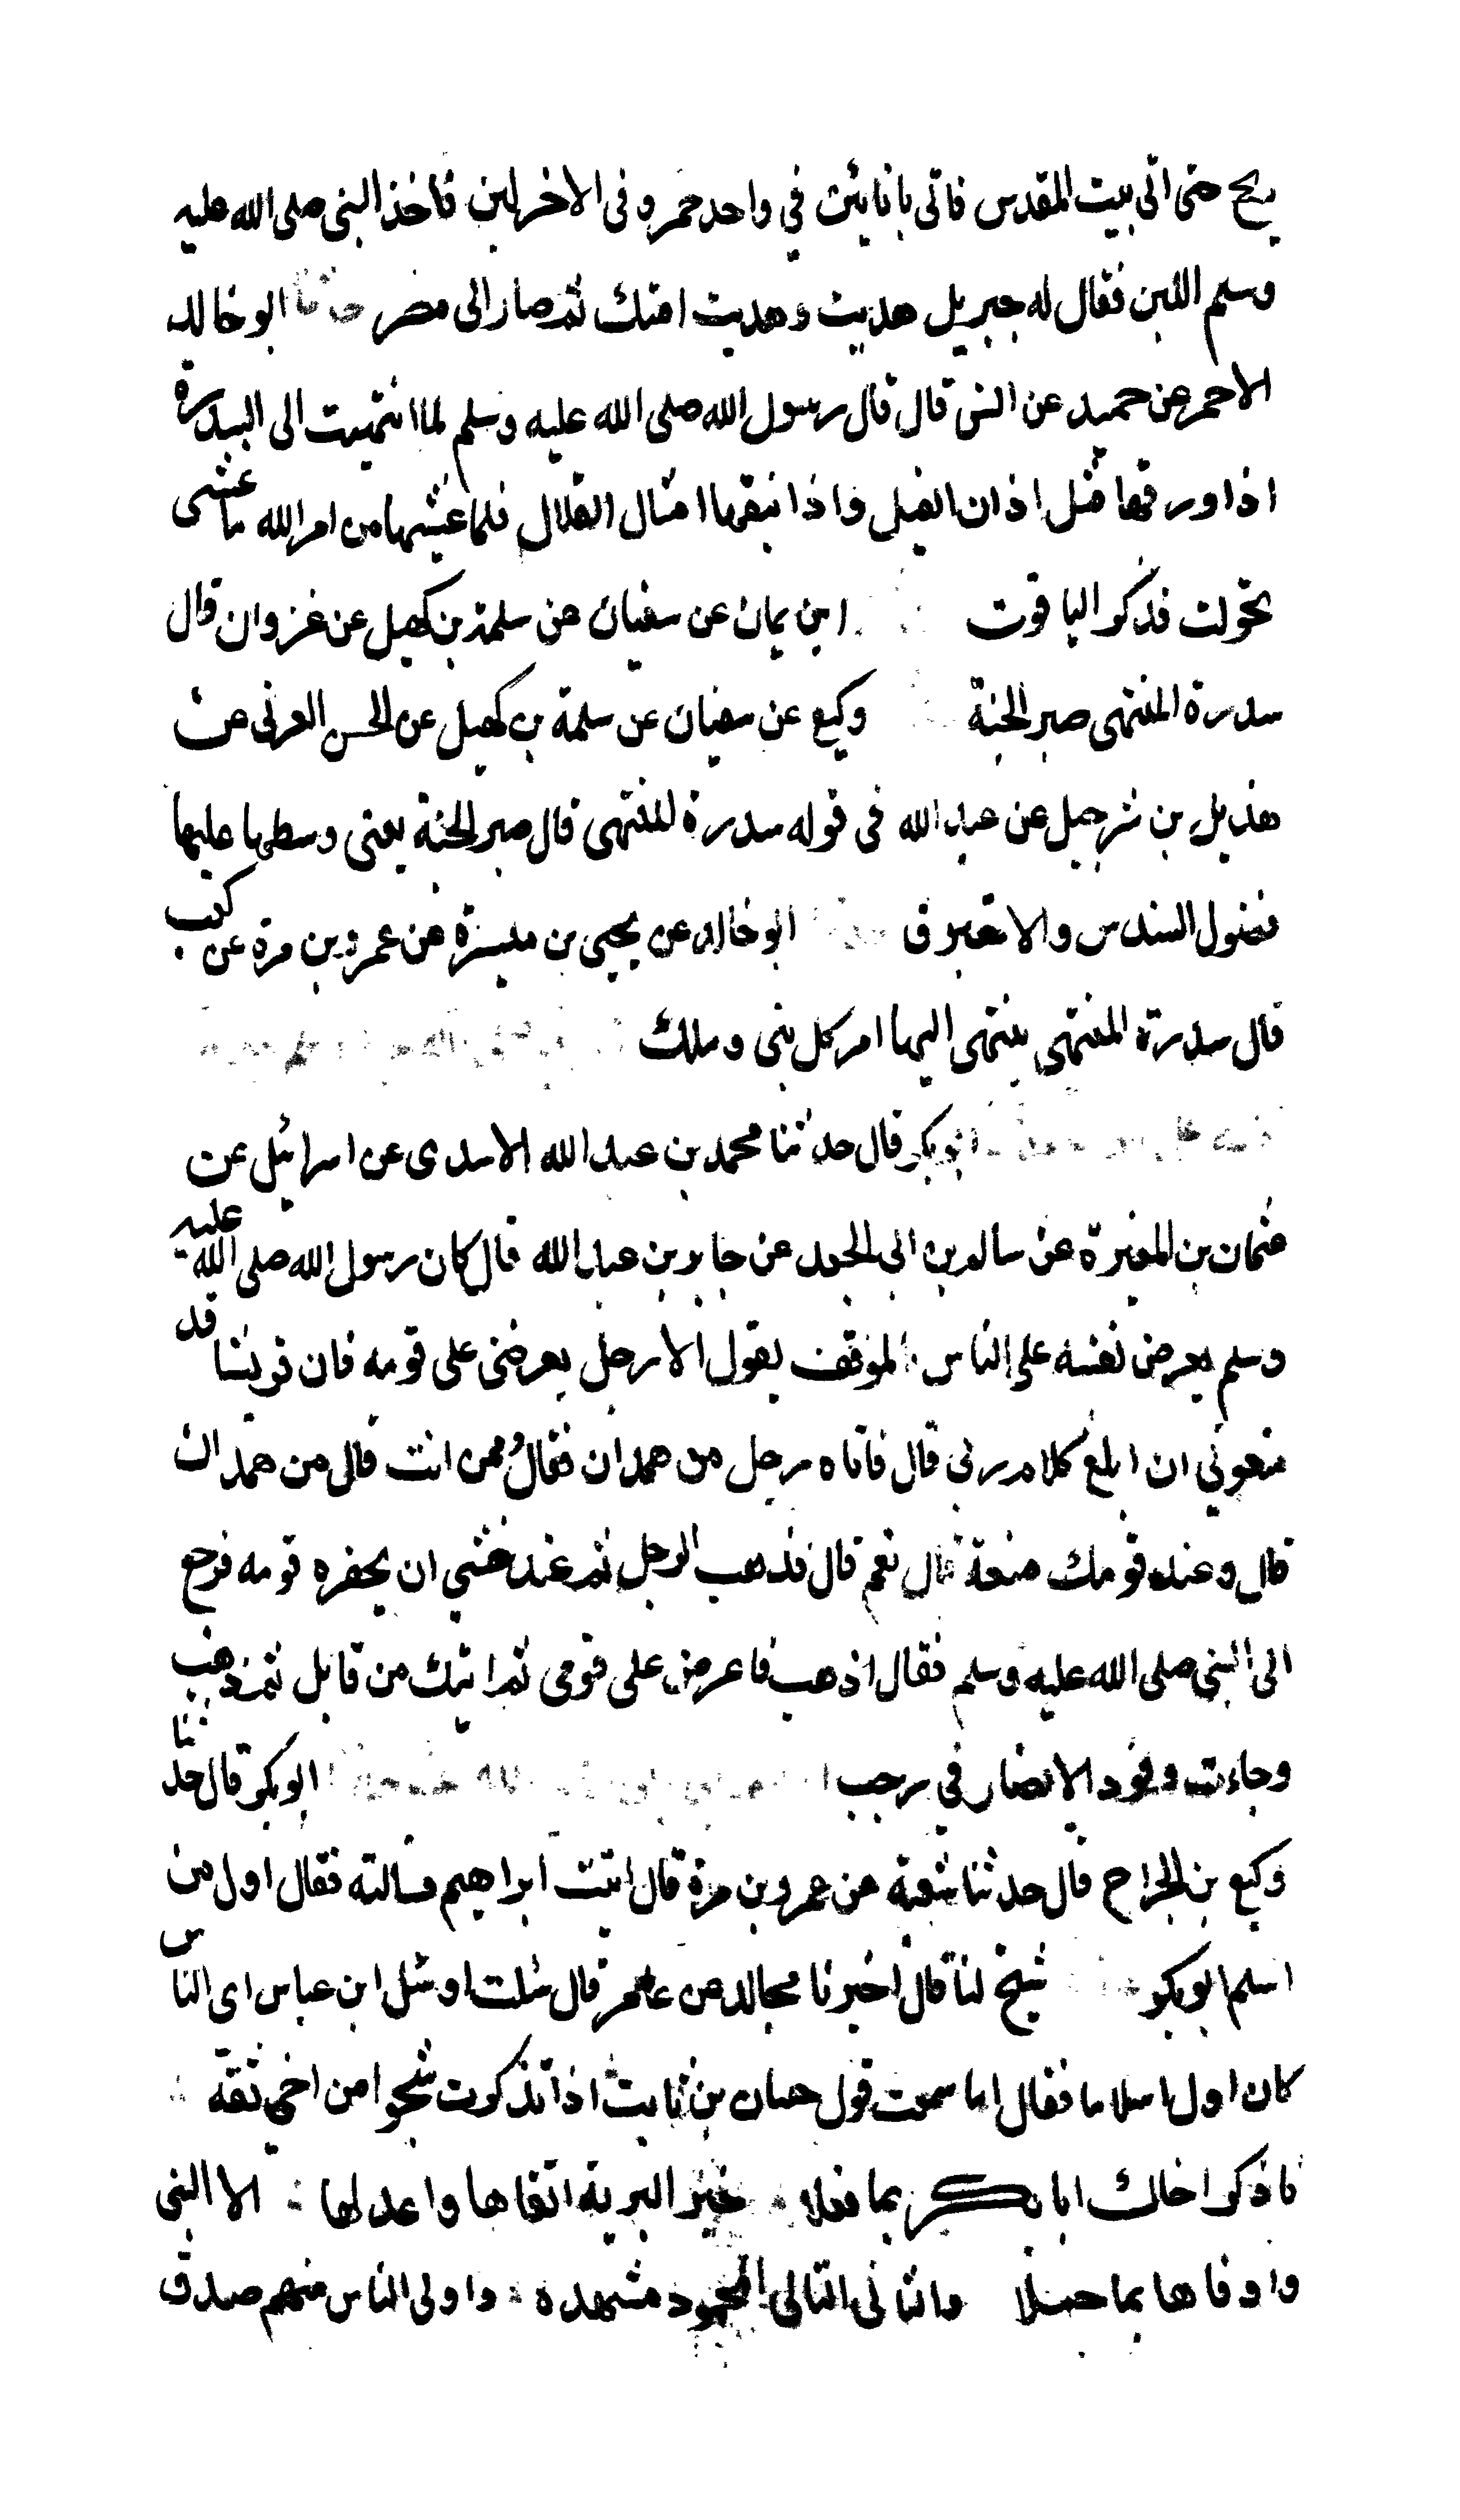 ريح حتى اتى بيت المقدس فاتى بانائين في واحد خمر وفى الاخر لبن فاخذ النبى صلى الله عليه
وسلم اللبن فقال له جبريل هديت وهديت امتك ثم صار الى مضر حدثنا ابو خالد
الاحمر عن حميد عن انس قال قال رسول الله صلى الله عليه وسلم لما انتهيت الى السدرة
اذا ورقها مثل اذان الفيل واذا نبقها امثال القلال فلما غشيها من امر الله ما غشى
تحولت فذكر الياقوت ابن يمان عن سفيان عن سلمة بن كهيل عن غزوان قال
سدرة المنتهى صبر الجنة وكيع عن سفيان عن سلمة بن كهيل عن الحسن العرنى عن
هذيل بن شرحبيل عن عبد الله في قوله سدرة المنتهى قال صبر الجنة يعنى وسطها عليها
فضول السندس والاستبرق ابو خالد عن يحيى بن ميسرة عن عمرو بن مرة عن كعب
قال سدرة المنتهى ينتهى اليها امر كل نبى وملك
ابو بكر قال حدثنا محمد بن عبد الله الاسدى عن اسرائيل عن
عثمان بن المغيرة عن سالم بن ابى الجعد عن جابر بن عبد الله قال كان رسول الله صلى الله عليه
وسلم يعرض نفسه على الناس بالموقف يقول الا رجل يعرضنى على قومه فان قريشا قد
منعونى ان ابلغ كلام ربى قال فاتاه رجل من همدان فقال وممن انت قال من همدان
قال وعند قومك منعة قال نعم قال فذهب الرجل ثم عند خشى ان يخفره قومه فرجع
الى النبى صلى الله عليه وسلم فقال اذهب فاعرض على قومى ثم اتيك من قابل ثم ذهب
وجاءت وفود الانصار في رجب ابو بكر قال حدثنا
وكيع بن الجراح قال حدثنا شعبة عن عمرو بن مرة قال اتيت ابراهيم فسالته فقال اول من
اسلم ابو بكر شيخ لنا قال اخبرنا مجالد عن عامر قال سئلت او سئل ابن عباس اى الناس
كان اول اسلاما فقال اما سمعت قول حسان بن ثابت اذا تذكرت شجوا من اخى ثقة
فاذكر اخاك ابا بكر بما فعلا خير البرية اتقاها واعدلها الا النبى
واوفاها بما حملا والثانى التالى المحمود مشهده واولى الناس منهم صدق